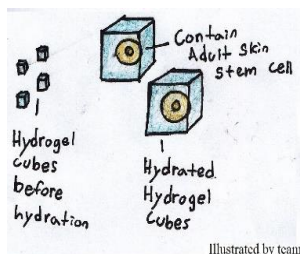 Contain
Adult Skin
Stem cell
Hydrogel
Cubes
before
hydration
Hydrated
Hydrogel
Cubes
Illustrated by team